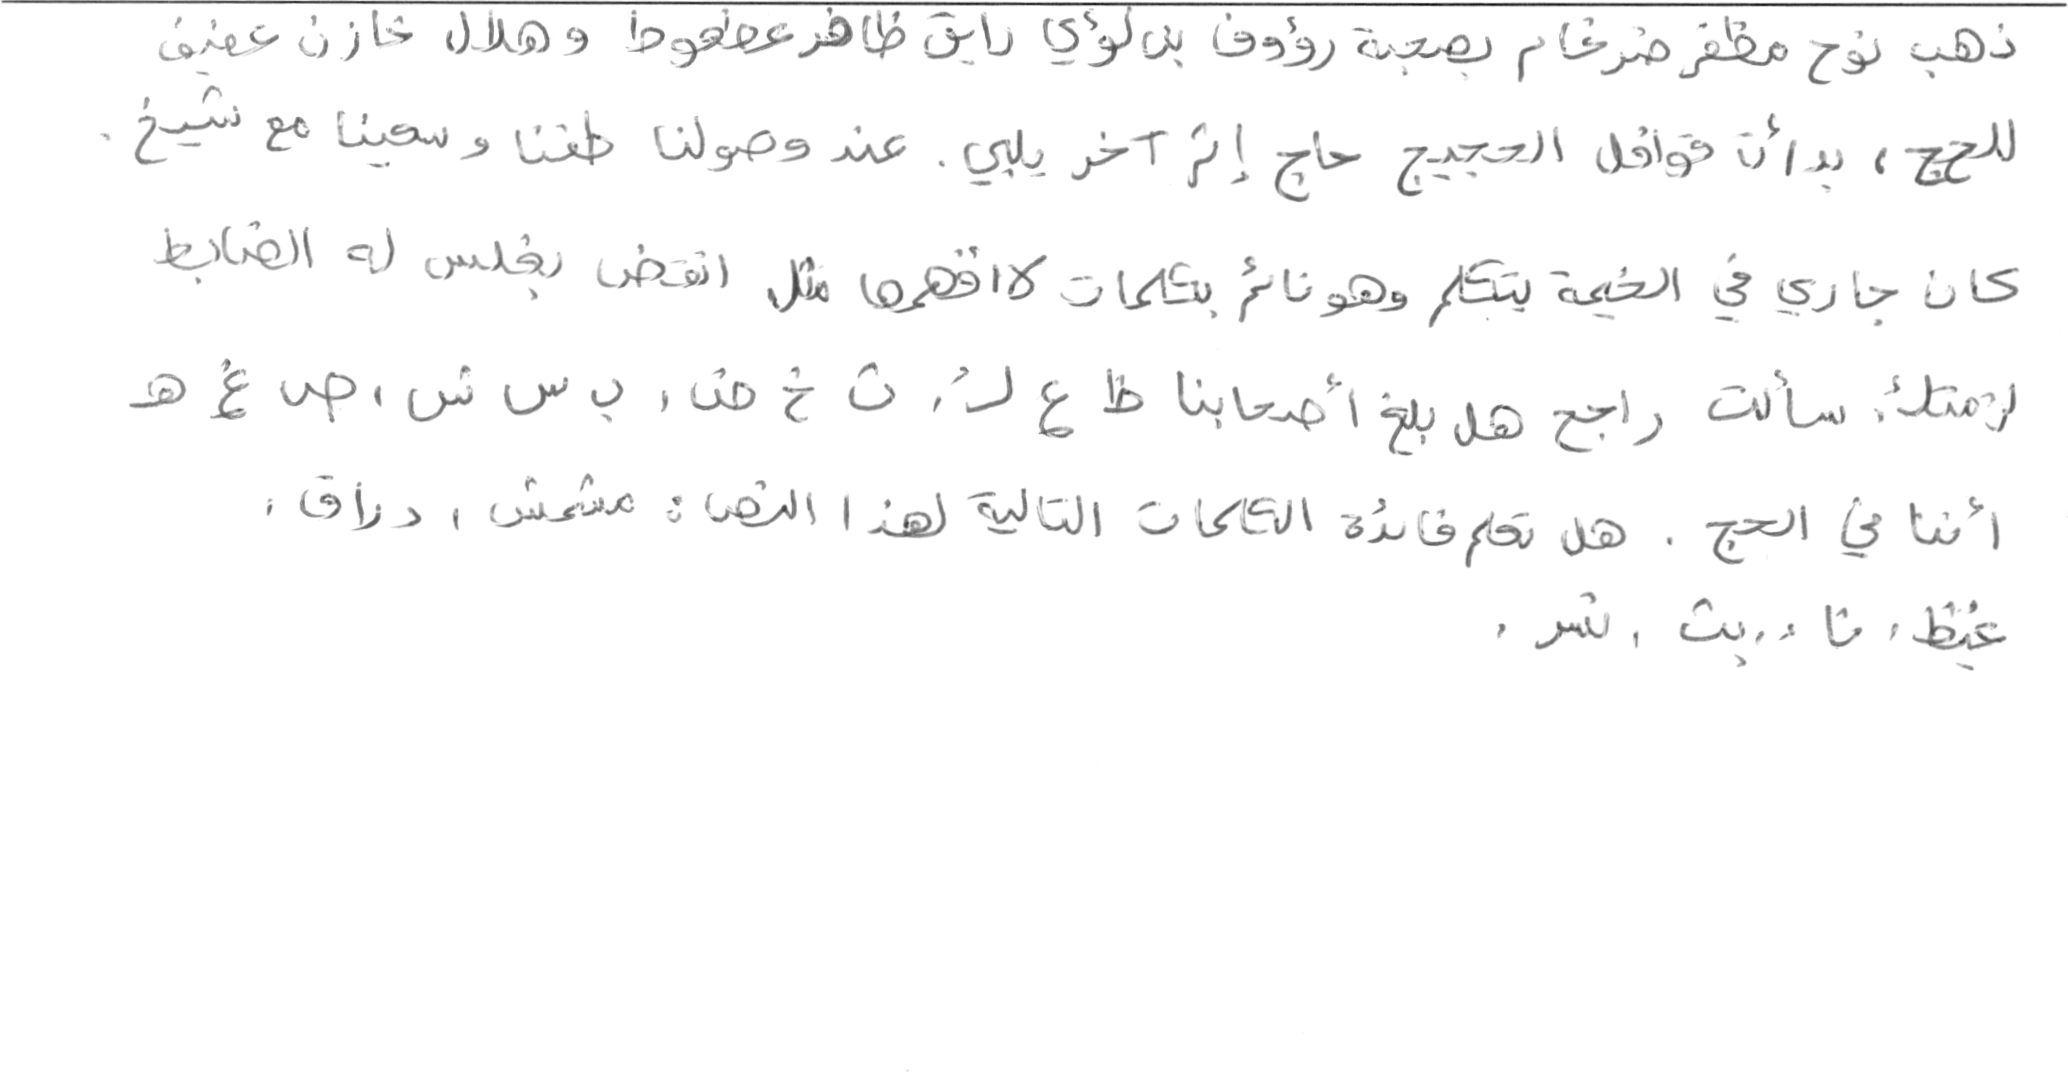 ذهب نوح مظفر ضرغام بصحبة رؤوف بن لؤي رايق ظافر عضعوط و هلال خازن عفيف
للحج ، بدأت قوافل الحجيج حاج إثر آخر يلبي . عند وصولنا طفنا و سعينا مع شيخ .
كان جاري في الخيمة يتكلم وهو نائم بكلمات لا افهمها مثل انقض بغلس له الضابط
سألت راجح هل بلغ أصحابنا ظ ع ك ، ث خ ض ، ب س ش ، ص غ ه
أننا في الحج . هل تعلم فائدة الكلمات التالية لهذا النص : مشمش ، دراق ،
غيظ ، تاء ، بث ، نسر ،